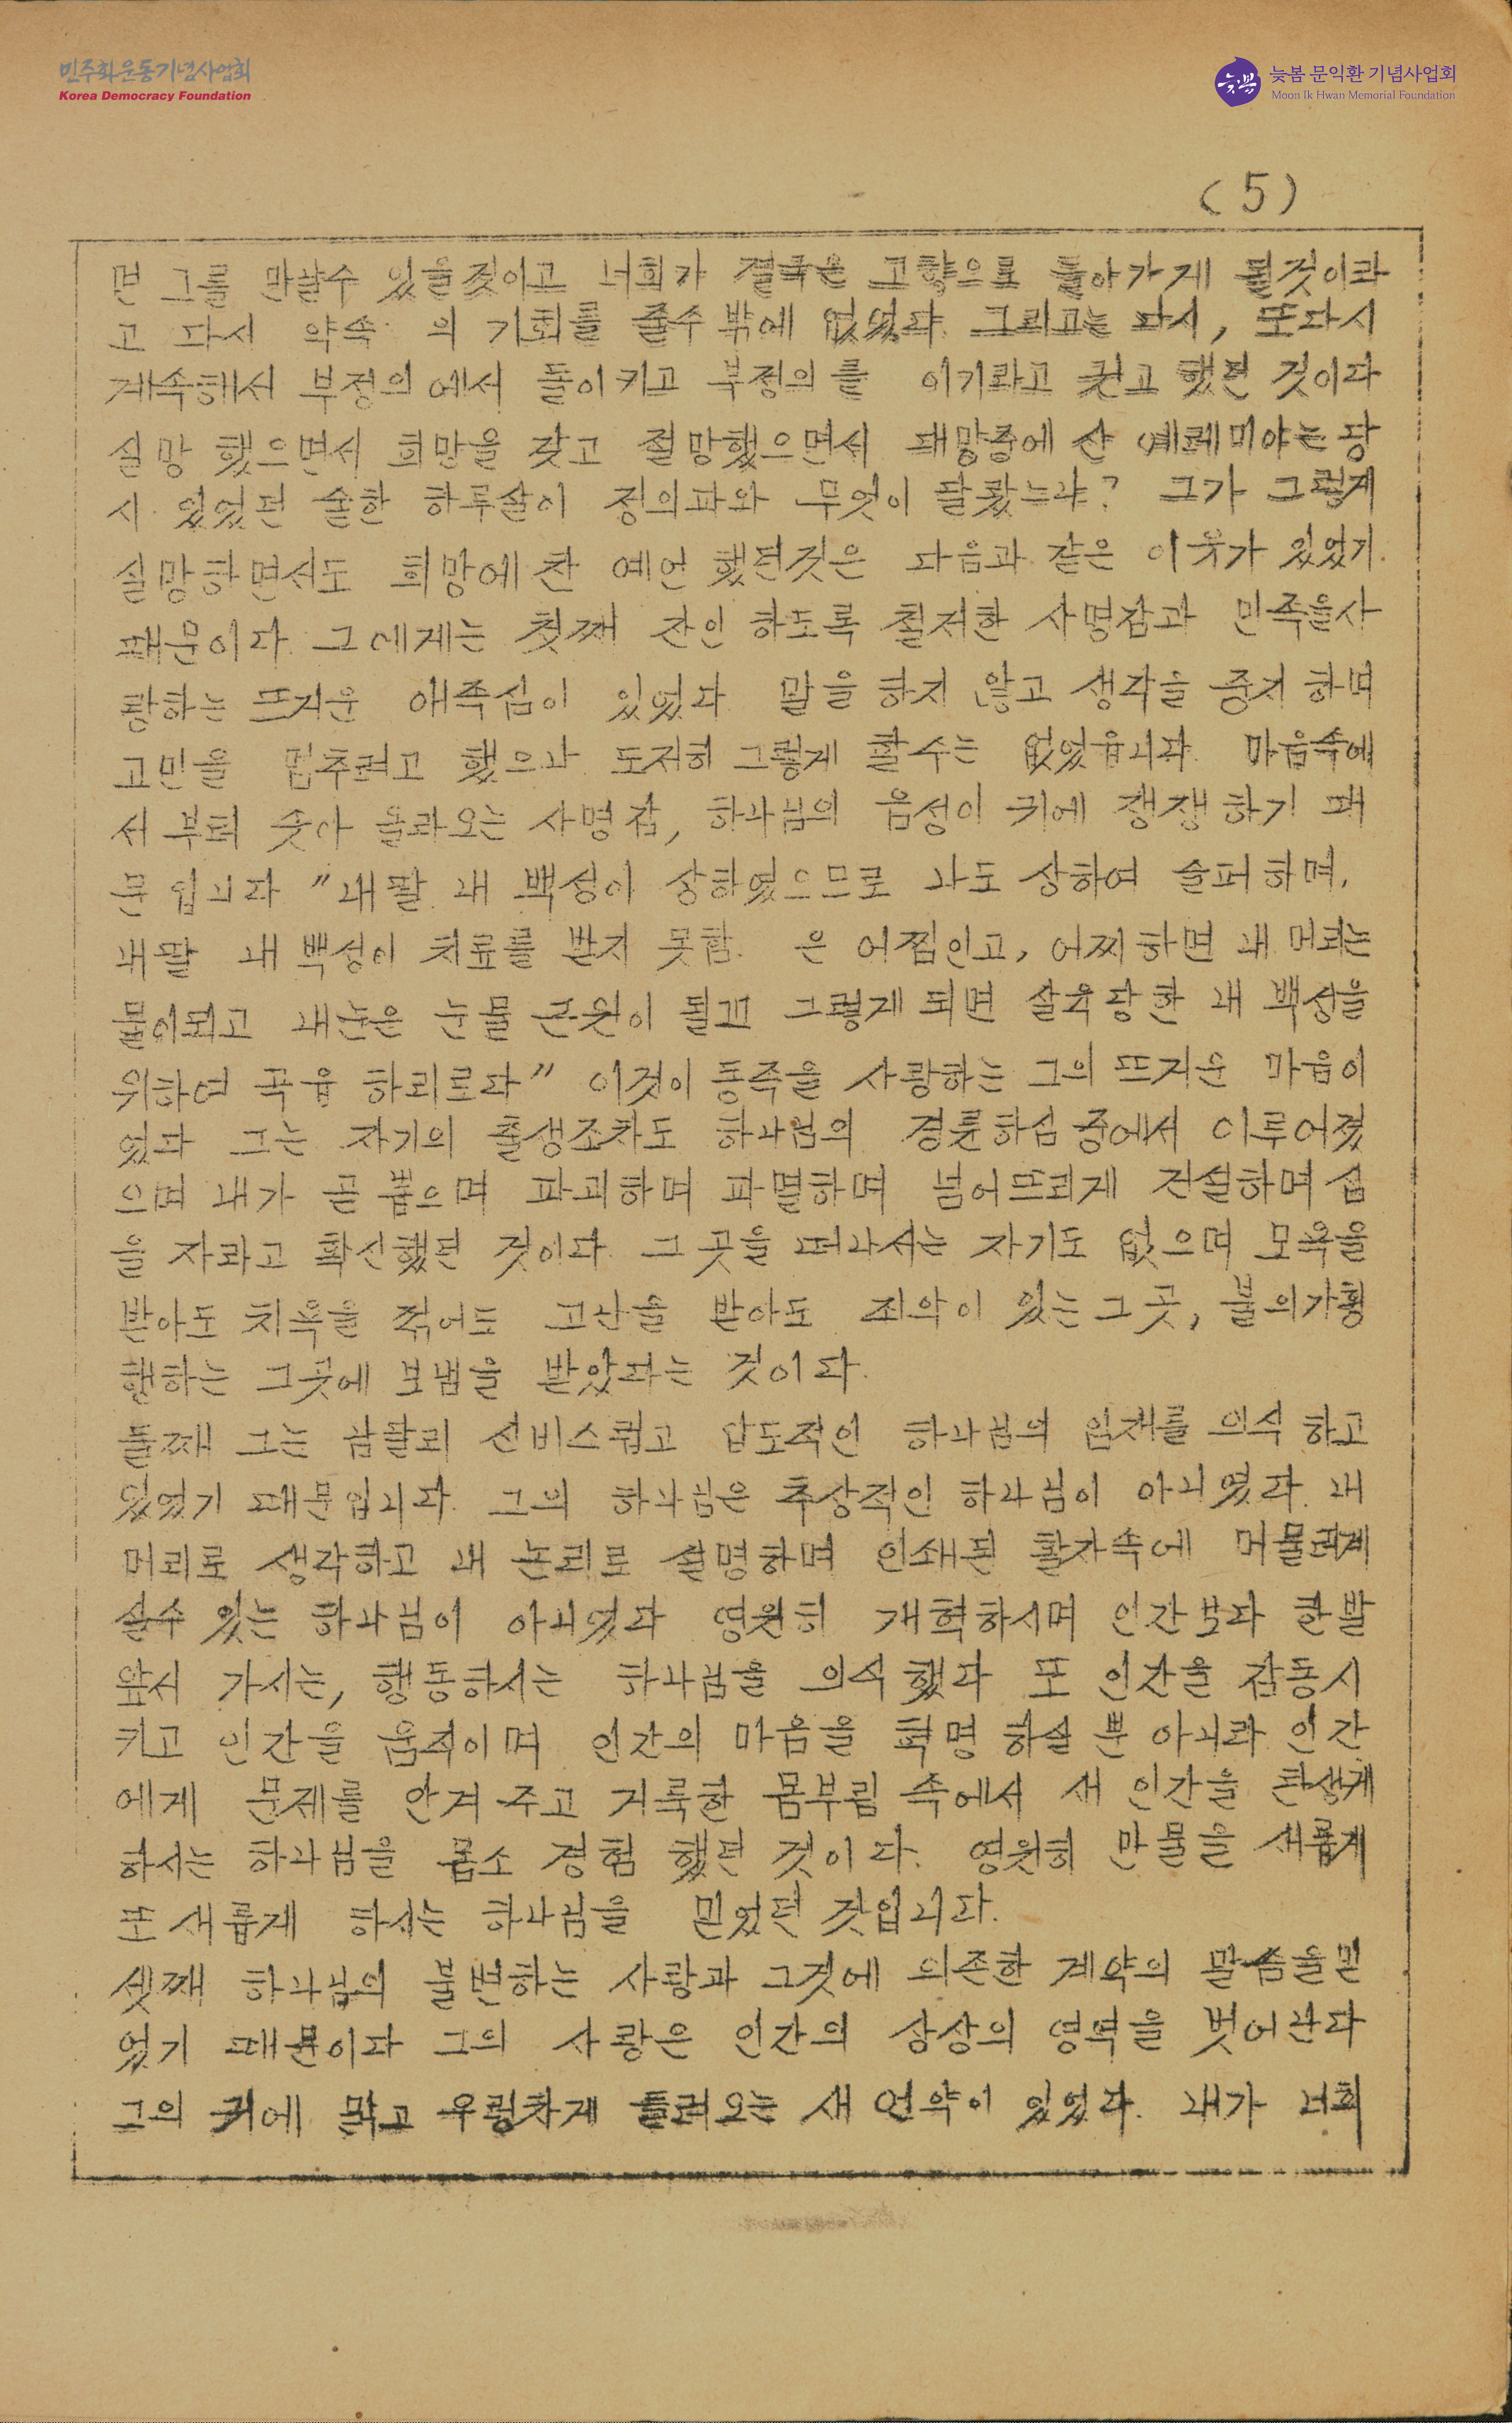 민주화운동기념사업회
Korea Democracy Foundation
늦봄
늦봄 문익환 기념사업회
Moon Ik Hwan Memorial Foundation
(5)
면 그를 만날수 있을것이고 너희가 결국은 고향으로 돌아가게 될것이라
고 다시 약속 의 기회를 줄수 밖에 없었다. 그리고는 다시, 또다시
계속해서 부정의 에서 돌이키고 부정의 를 이기라고 권고 했던 것이다
실망 했으면서 희망을 갖고 절망했으면서 패망중에 산 예레미야는 당
시 있었던 숱한 하루살이 정의파와 무엇이 달랐느냐? 그가 그렇게
실망하면서도 희망에 찬 예언 했던것은 다음과 같은 이유가 있었기
때문이다. 그에게는 첫째 잔인 하도록 철저한 사명감과 민족을사
랑하는 뜨거운 애족심이 있었다 말을 하지 않고 생각을 중지 하며
고민을 멈추려고 했으나 도저히 그렇게 할 수는 없었읍니다. 마음속에
서 부터 솟아 올라오는 사명감, 하나님의 음성이 귀에 쟁쟁하기 때
문 입니다 "내딸 내 백성이 상하였으므로 나도 상하여 슬퍼하며,
내딸 내 백성이 치료를 받지 못함. 은 어찜인고, 어찌하면 내 머리는
물이되고 내눈은 눈물 근원이 될꼬 그렇게 되면 살육당한 내 백성을
위하여 곡읍 하리로다" 이것이 동족을 사랑하는 그의 뜨거운 마음이
었다 그는 자기의 출생조차도 하나님의 경륜하심 중에서 이루어졌
으며 내가 곧 뽑으며 파괴하며 파멸하며 넘어뜨리게 건설하며 심
을 자라고 확신했던 것이다. 그 곳을 떠나서는 자기도 없으며 모욕을
받아도 치욕을 겪어도 고난을 받아도 죄악이 있는 그 곳, 불의가횡
핸하는 그곳에 보냄을 받았다는 것이다.
둘째 그는 남달리 신비스럽고 압도적인 하나님의 임재를 의식 하고
있었기 때문입니다. 그의 하나님은 추상적인 하나님이 아니였다. 내
머리로 생각하고 내 논리로 설명하며 인쇄된 활자속에 머물러계
실수 있는 하나님이 아니였다 영원히 개혁하시며 인간보다 한발
앞서 가시는, 행동하시는 하나님을 의식했다 또 인간을 감동시
키고 인간을 움직이며 인간의 마음을 혁명 하실 뿐 아니라 인간
에게 문제를 안겨 주고 거룩한 몸부림 속에서 새 인간을 탄생케
하시는 하나님을 몸소 경험 했던 것이다. 영원히 만물을 새롭게
또 새롭게 하시는 하나님을 믿었던 것입니다.
셋째 하나님의 불변하는 사랑과 그것에 의존한 계약의 말씀을믿
었기 때문이다 그의 사랑은 인간의 상상의 영역을 벗어난다
그의 귀에 맑고 우렁차게 들려오는 새 언약이 있었다. 내가 너희